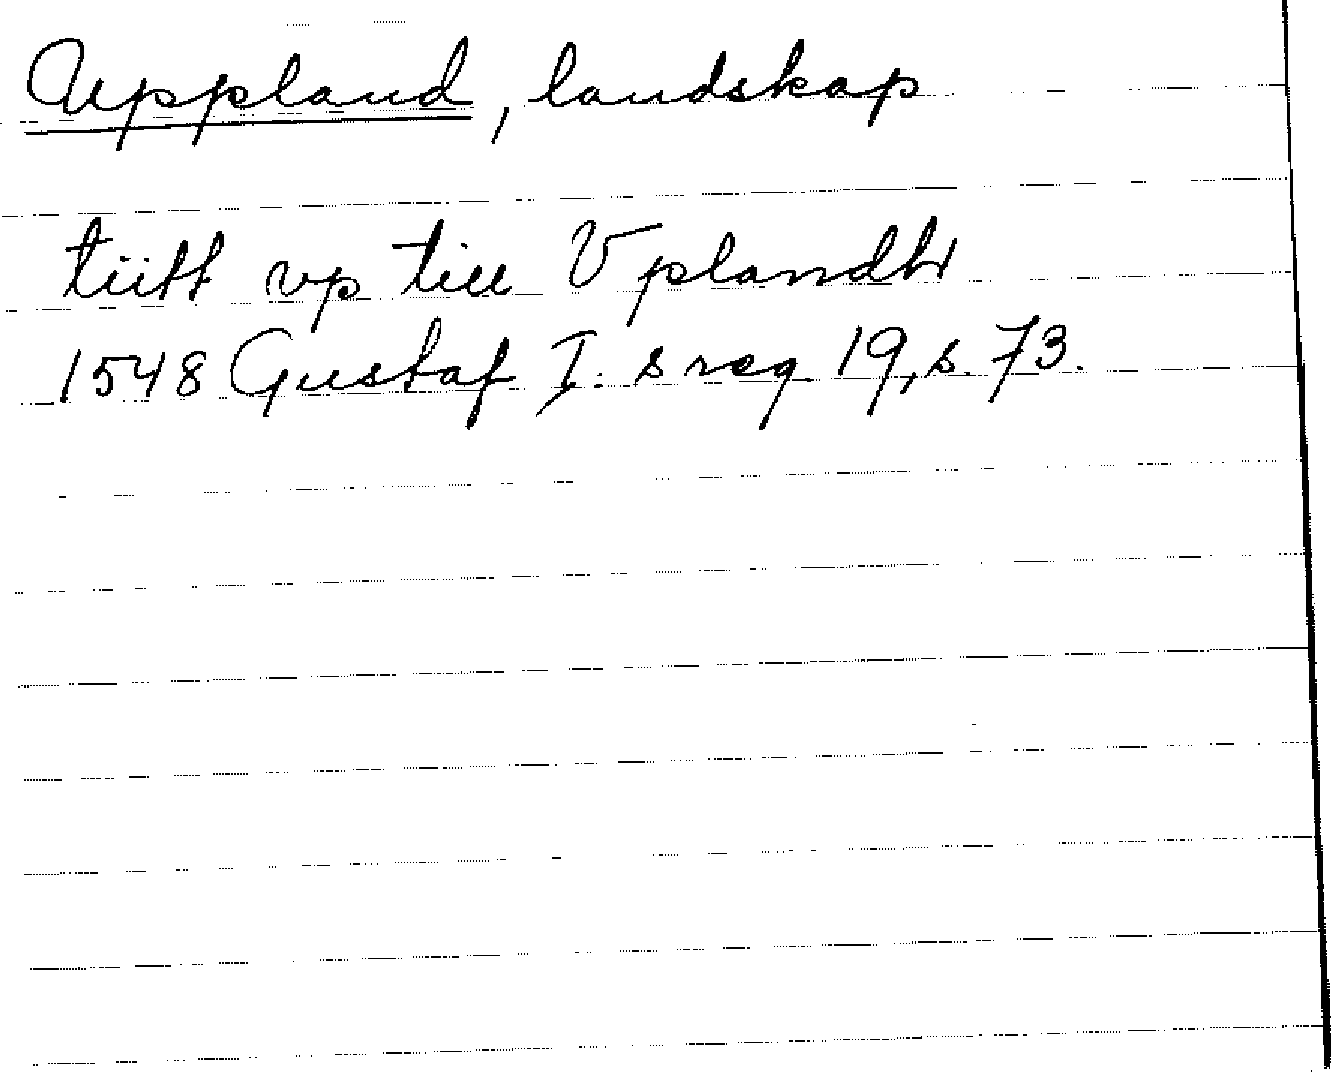 Uppland, landskap
tiitt vp till Vplandh
1548 Gustaf I:s reg 19, s. 73.